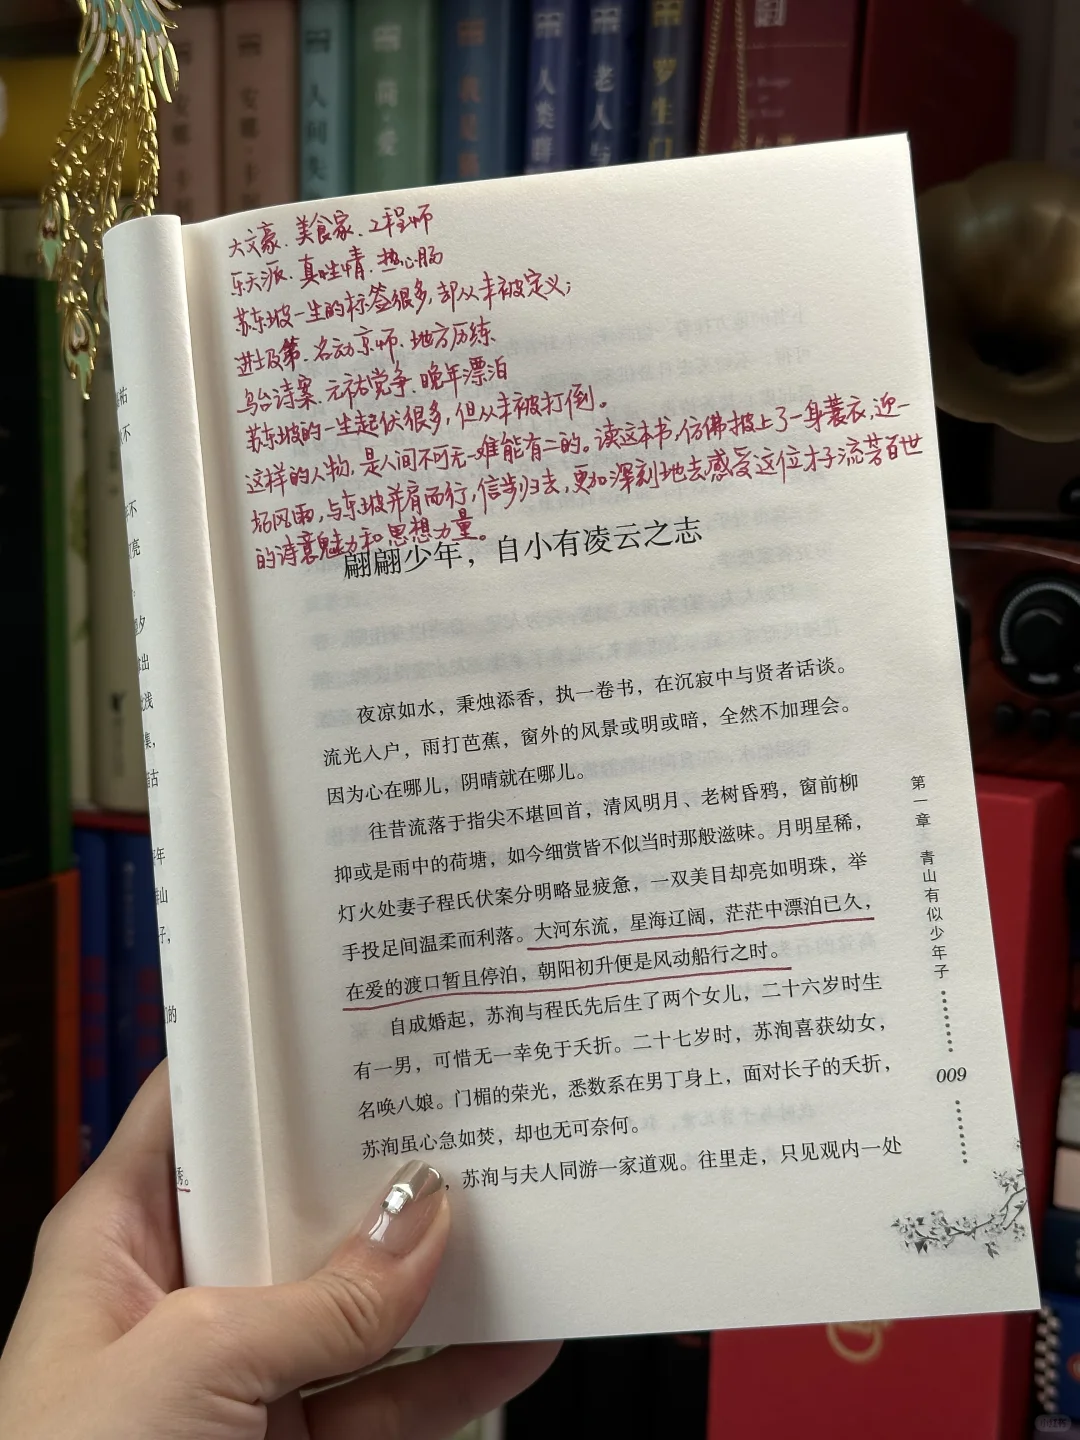 安娜·卡
安娜·卡
人间失
简·爱
人类群
老人与
罗生门
大文豪、美食家、工程师
乐天派、真性情、热心肠
苏东坡一生的标签很多,却从未被定义;
进士及第、名动京师、地方历练
乌台诗案、元祐党争、晚年漂泊
苏东坡的一生起伏很多,但从未被打倒。
这样的人物,是人间不可无一难能有二的。读这本书,仿佛披上了一身蓑衣,迎一
场风雨,与东坡并肩而行,信步归去,更加深刻地去感受这位才子流芳百世
的诗意魅力和思想力量。
翩翩少年,自小有凌云之志
夜凉如水,秉烛添香,执一卷书,在沉寂中与贤者话谈。
流光入户,雨打芭蕉,窗外的风景或明或暗,全然不加理会。
因为心在哪儿,阴晴就在哪儿。
往昔流落于指尖不堪回首,清风明月、老树昏鸦,窗前柳
抑或是雨中的荷塘,如今细赏皆不似当时那般滋味。月明星稀,
灯火处妻子程氏伏案分明略显疲惫,一双美目却亮如明珠,举
手投足间温柔而利落。大河东流,星海辽阔,茫茫中漂泊已久,
在爱的渡口暂且停泊,朝阳初升便是风动船行之时。
自成婚起,苏洵与程氏先后生了两个女儿,二十六岁时生
有一男,可惜无一幸免于夭折。二十七岁时,苏洵喜获幼女,
名唤八娘。门楣的荣光,悉数系在男丁身上,面对长子的夭折,
苏洵虽心急如焚,却也无可奈何。
,苏洵与夫人同游一家道观。往里走,只见观内一处
第一章 青山有似少年子
009
小红书